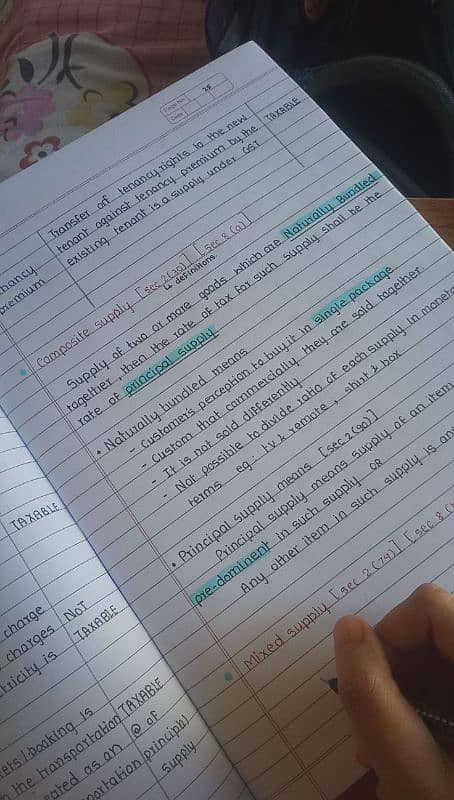 Page No. 25
Date
Transfer of tenancy rights to the new
tenant against tenancy premium by the
existing tenant is a supply under GST
TAXABLE
nancy
premium
Composite supply [sec 2(30)] [sec 8(a)]
definitions
Supply of two or more goods which are Naturally Bundled
together, then the rate of tax for such supply shall be the
rate of principal supply
• Naturally bundled means
- Customer's perception to buy it in single package
- Custom that commercially they are sold together
- It is not sold differently
- Not possible to divide ratio of each supply in moneta
terms eg:- T.V & remote, shirt & box
• Principal Supply means [sec 2(90)]
Principal supply means supply of an item
pre-dominent in such supply OR
Any other item in such supply is an
Mixed supply [sec 2(74)] [sec 8(
TAXABLE
charge
charges
tricity is
NOT
TAXABLE
booking is
n the transportation
ated as an
portation principal
TAXABLE
@ of
supply